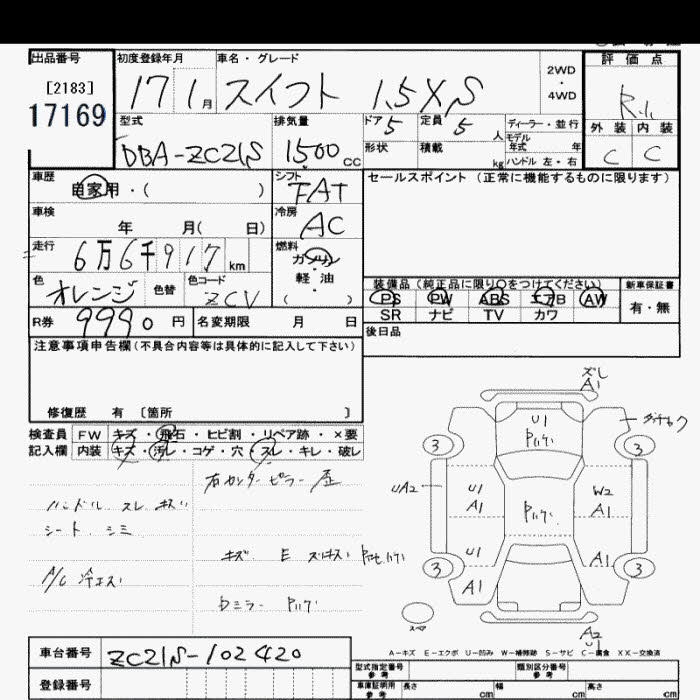 出品番号 初度登録年月 車名・グレード 2WD・4WD 評価点
[2183]
17169 17 1月 スイフト 1.5XS R.1.
型式 排気量 ドア 5 定員 5人 ディーラー・並行 外装 内装
DBA-ZC21S 1500cc モデル年式 年 C C
形状 積載 kg ハンドル 左・右
車歴 自家用・( ) シフト FAT セールスポイント (正常に機能するものに限ります)
車検 年 月( 日) 冷房 AC
走行 6万6千917km 燃料 ガソリン
軽油
( )
色 オレンジ 色替 色コード ZCV
装備品 (純正品に限り○をつけてください) 新車保証書
PS PW ABS エアB AW 有・無
SR ナビ TV カワ
R券 9990円 名変期限 月 日 後日品
注意事項申告欄(不具合内容等は具体的に記入して下さい)
修復歴 有 [箇所 ]
検査員 FW キズ・飛石・ヒビ割・リペア跡・×要
記入欄 内装 キズ・汚レ・コゲ・穴・スレ・キレ・破レ
右センターピラー 歪
ハンドル スレ キズ
シート シミ
キズ E
A/C 冷エズ
ズレ
A1
U1
3 3
UA2 U1 W2
A1 A1
U1 A1
3 3
A1
スペア
A2
U1
A-キズ E-エクボ U-凹み W-補修跡 S-サビ C-腐食 XX-交換済
車台番号 ZC21S-102420
登録番号
型式指定番号 参考 類別区分番号 参考
車庫証明用 参考 長さ cm 幅 cm 高さ cm